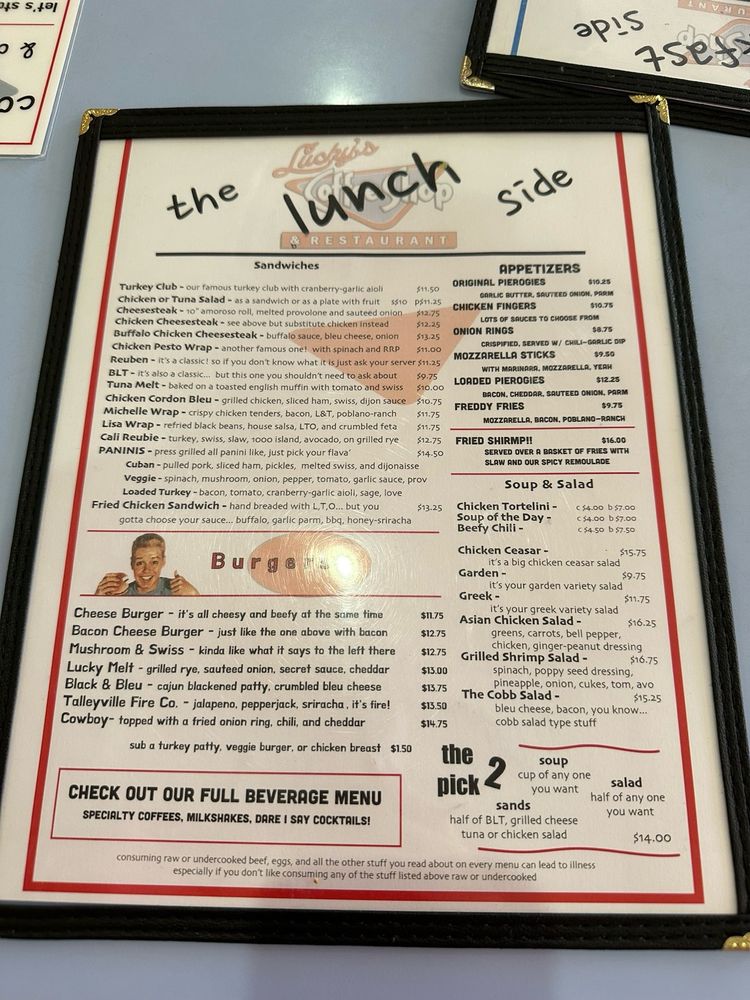 let's sta
& a
co
side
fast
Shop
URANT
Lucky's
Coffee Shop
& RESTAURANT
the lunch side
Sandwiches
Turkey Club - our famous turkey club with cranberry-garlic aioli $11.50
Chicken or Tuna Salad - as a sandwich or as a plate with fruit s$10 p$11.25
Cheesesteak - 10" amoroso roll, melted provolone and sauteed onion $12.75
Chicken Cheesesteak - see above but substitute chicken instead $12.25
Buffalo Chicken Cheesesteak - buffalo sauce, bleu cheese, onion $13.25
Chicken Pesto Wrap - another famous one! with spinach and RRP $11.00
Reuben - it's a classic! so if you don't know what it is just ask your server $11.25
BLT - it's also a classic... but this one you shouldn't need to ask about $9.75
Tuna Melt - baked on a toasted english muffin with tomato and swiss $10.00
Chicken Cordon Bleu - grilled chicken, sliced ham, swiss, dijon sauce $10.75
Michelle Wrap - crispy chicken tenders, bacon, L&T, poblano-ranch $11.75
Lisa Wrap - refried black beans, house salsa, LTO, and crumbled feta $11.75
Cali Reubie - turkey, swiss, slaw, 1000 island, avocado, on grilled rye $12.75
PANINIS - press grilled all panini like, just pick your flava' $14.50
Cuban - pulled pork, sliced ham, pickles, melted swiss, and dijonaisse
Veggie - spinach, mushroom, onion, pepper, tomato, garlic sauce, prov
Loaded Turkey - bacon, tomato, cranberry-garlic aioli, sage, love
Fried Chicken Sandwich - hand breaded with L,T,O... but you $13.25
gotta choose your sauce... buffalo, garlic parm, bbq, honey-sriracha
Burgers
Cheese Burger - it's all cheesy and beefy at the same time $11.75
Bacon Cheese Burger - just like the one above with bacon $12.75
Mushroom & Swiss - kinda like what it says to the left there $12.75
Lucky Melt - grilled rye, sauteed onion, secret sauce, cheddar $13.00
Black & Bleu - cajun blackened patty, crumbled bleu cheese $13.75
Talleyville Fire Co. - jalapeno, pepperjack, sriracha, it's fire! $13.50
Cowboy- topped with a fried onion ring, chili, and cheddar $14.75
sub a turkey patty, veggie burger, or chicken breast $1.50
CHECK OUT OUR FULL BEVERAGE MENU
SPECIALTY COFFEES, MILKSHAKES, DARE I SAY COCKTAILS!
APPETIZERS
ORIGINAL PIEROGIES $10.25
GARLIC BUTTER, SAUTEED ONION, PARM
CHICKEN FINGERS $10.75
LOTS OF SAUCES TO CHOOSE FROM
ONION RINGS $8.75
CRISPIFIED, SERVED W/ CHILI-GARLIC DIP
MOZZARELLA STICKS $9.50
WITH MARINARA, MOZZARELLA, YEAH
LOADED PIEROGIES $12.25
BACON, CHEDDAR, SAUTEED ONION, PARM
FREDDY FRIES $9.75
MOZZARELLA, BACON, POBLANO-RANCH
FRIED SHIRMP!! $16.00
SERVED OVER A BASKET OF FRIES WITH
SLAW AND OUR SPICY REMOULADE
Soup & Salad
Chicken Tortelini - c $4.00 b $7.00
Soup of the Day - c $4.00 b $7.00
Beefy Chili - c $4.50 b $7.50
Chicken Ceasar - $15.75
it's a big chicken ceasar salad
Garden - $9.75
it's your garden variety salad
Greek - $11.75
it's your greek variety salad
Asian Chicken Salad - $16.25
greens, carrots, bell pepper,
chicken, ginger-peanut dressing
Grilled Shrimp Salad - $16.75
spinach, poppy seed dressing,
pineapple, onion, cukes, tom, avo
The Cobb Salad - $15.25
bleu cheese, bacon, you know...
cobb salad type stuff
the pick 2
soup
cup of any one
you want
salad
half of any one
you want
sands
half of BLT, grilled cheese
tuna or chicken salad
$14.00
consuming raw or undercooked beef, eggs, and all the other stuff you read about on every menu can lead to illness
especially if you don't like consuming any of the stuff listed above raw or undercooked